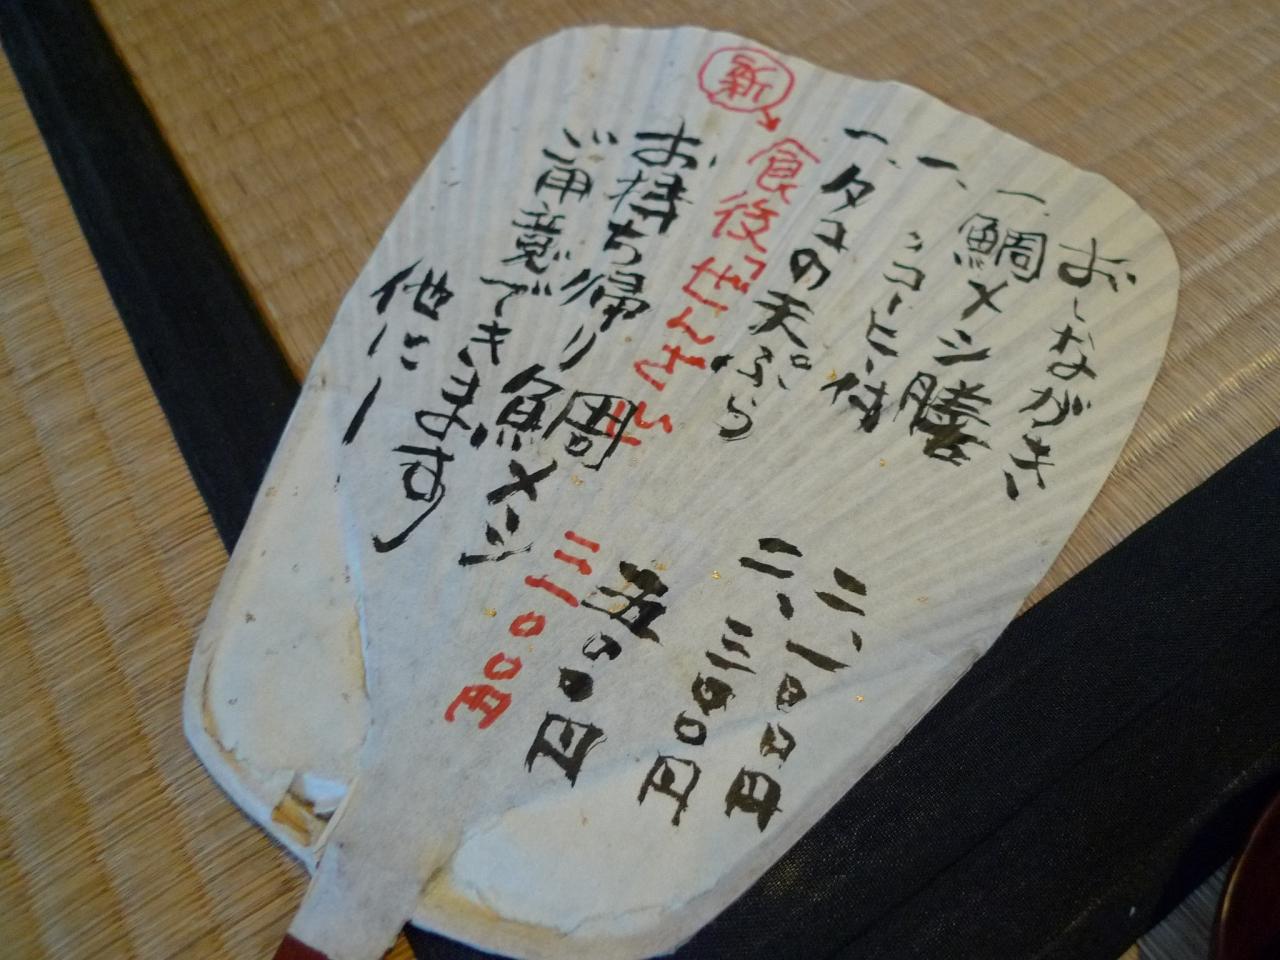 おしながき
一、鯛メシ膳 二、一〇〇円
一、〃コーヒー付 二、三〇〇円
一、タコの天ぷら 五〇〇円
新 食後 ぜんざい付 三一〇〇円
お持ち帰り鯛メシ
ご用意できます
他にー